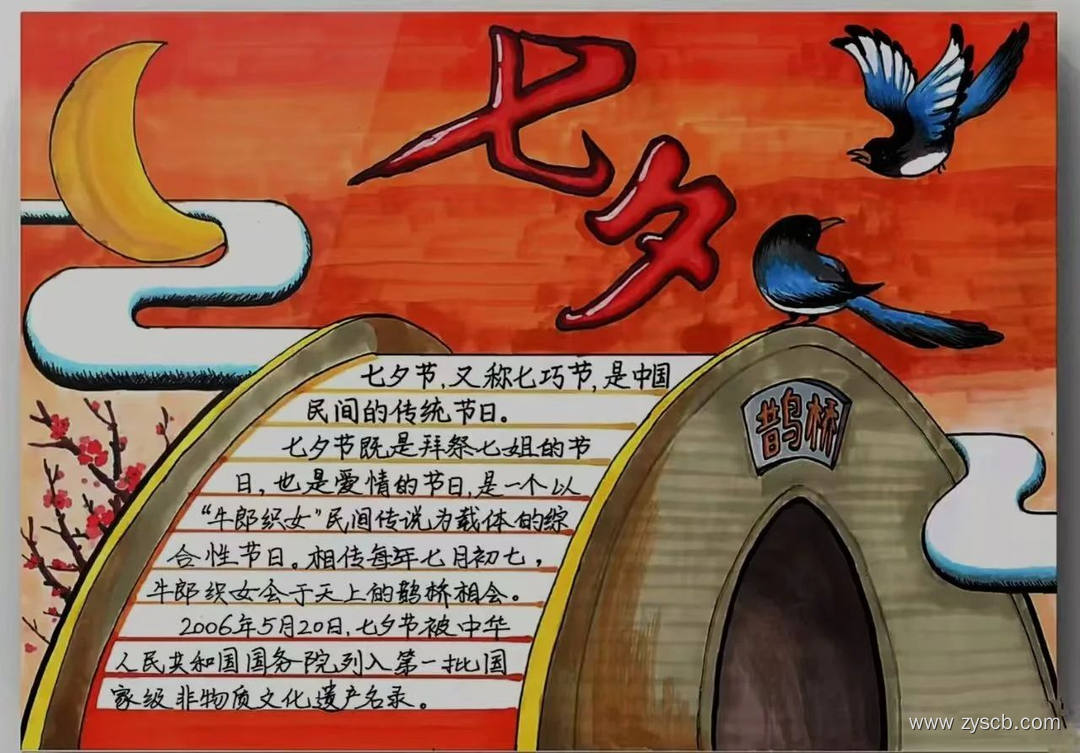 七夕
七夕节,又称七巧节,是中国
民间的传统节日。
七夕节既是拜祭七姐的节
日,也是爱情的节日,是一个以
“牛郎织女”民间传说为载体的综
合性节日。相传每年七月初七,
牛郎织女会于天上的鹊桥相会。
2006年5月20日,七夕节被中华
人民共和国国务院列入第一批国
家级非物质文化遗产名录。
鹊桥
www.zyscb.com